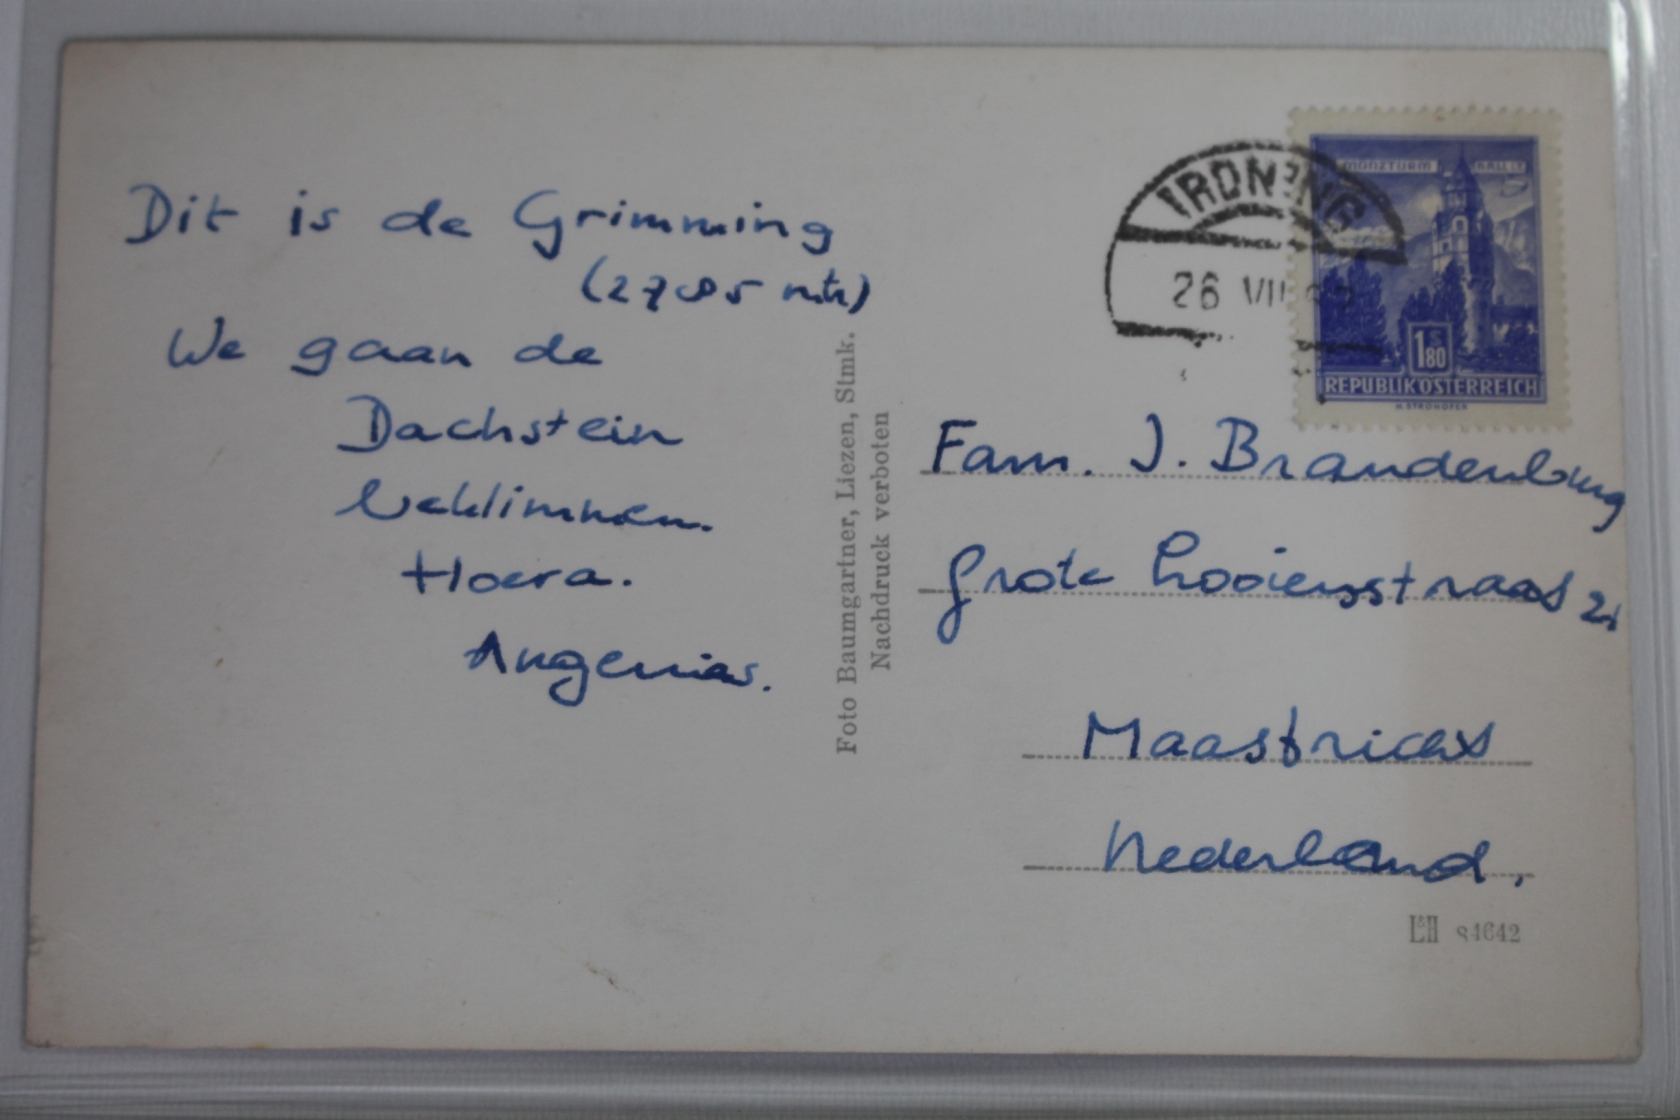 Dit is de Grimming
(2785 mtr)
We gaan de
Dachstein
beklimmen.
Hoera.
Foto Baumgartner, Liezen, Stmk.
Nachdruck verboten
IRDNING
26 VII
MÜNZTURM HALL I.T.
1S80
REPUBLIK ÖSTERREICH
H. STROHOFER
Fam. J. Brandenburg
Grote Looiersstraat 21
Maastricht
Nederland.
L&H 84642